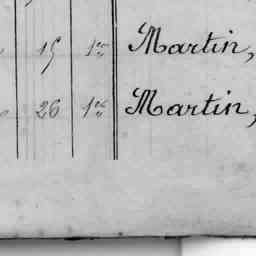 15 1 Martin,
26 1 Martin,